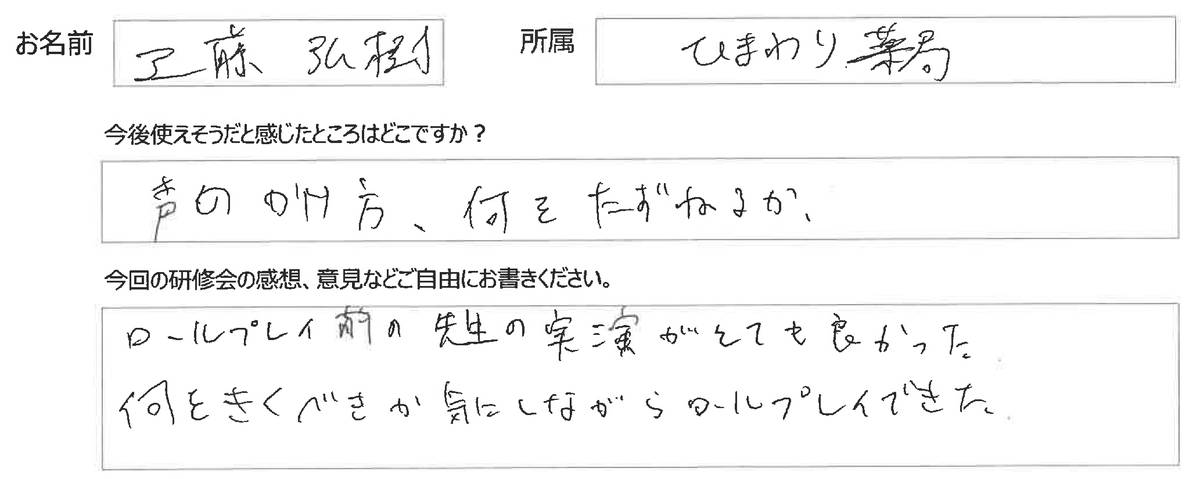 お名前 工藤 弘樹 所属 ひまわり薬局
今後使えそうだと感じたところはどこですか？
声のかけ方、何をたずねるか、
今回の研修会の感想、意見などご自由にお書きください。
ロールプレイ前の先生の実演がとても良かった
何をきくべきか気にしながらロールプレイできた。